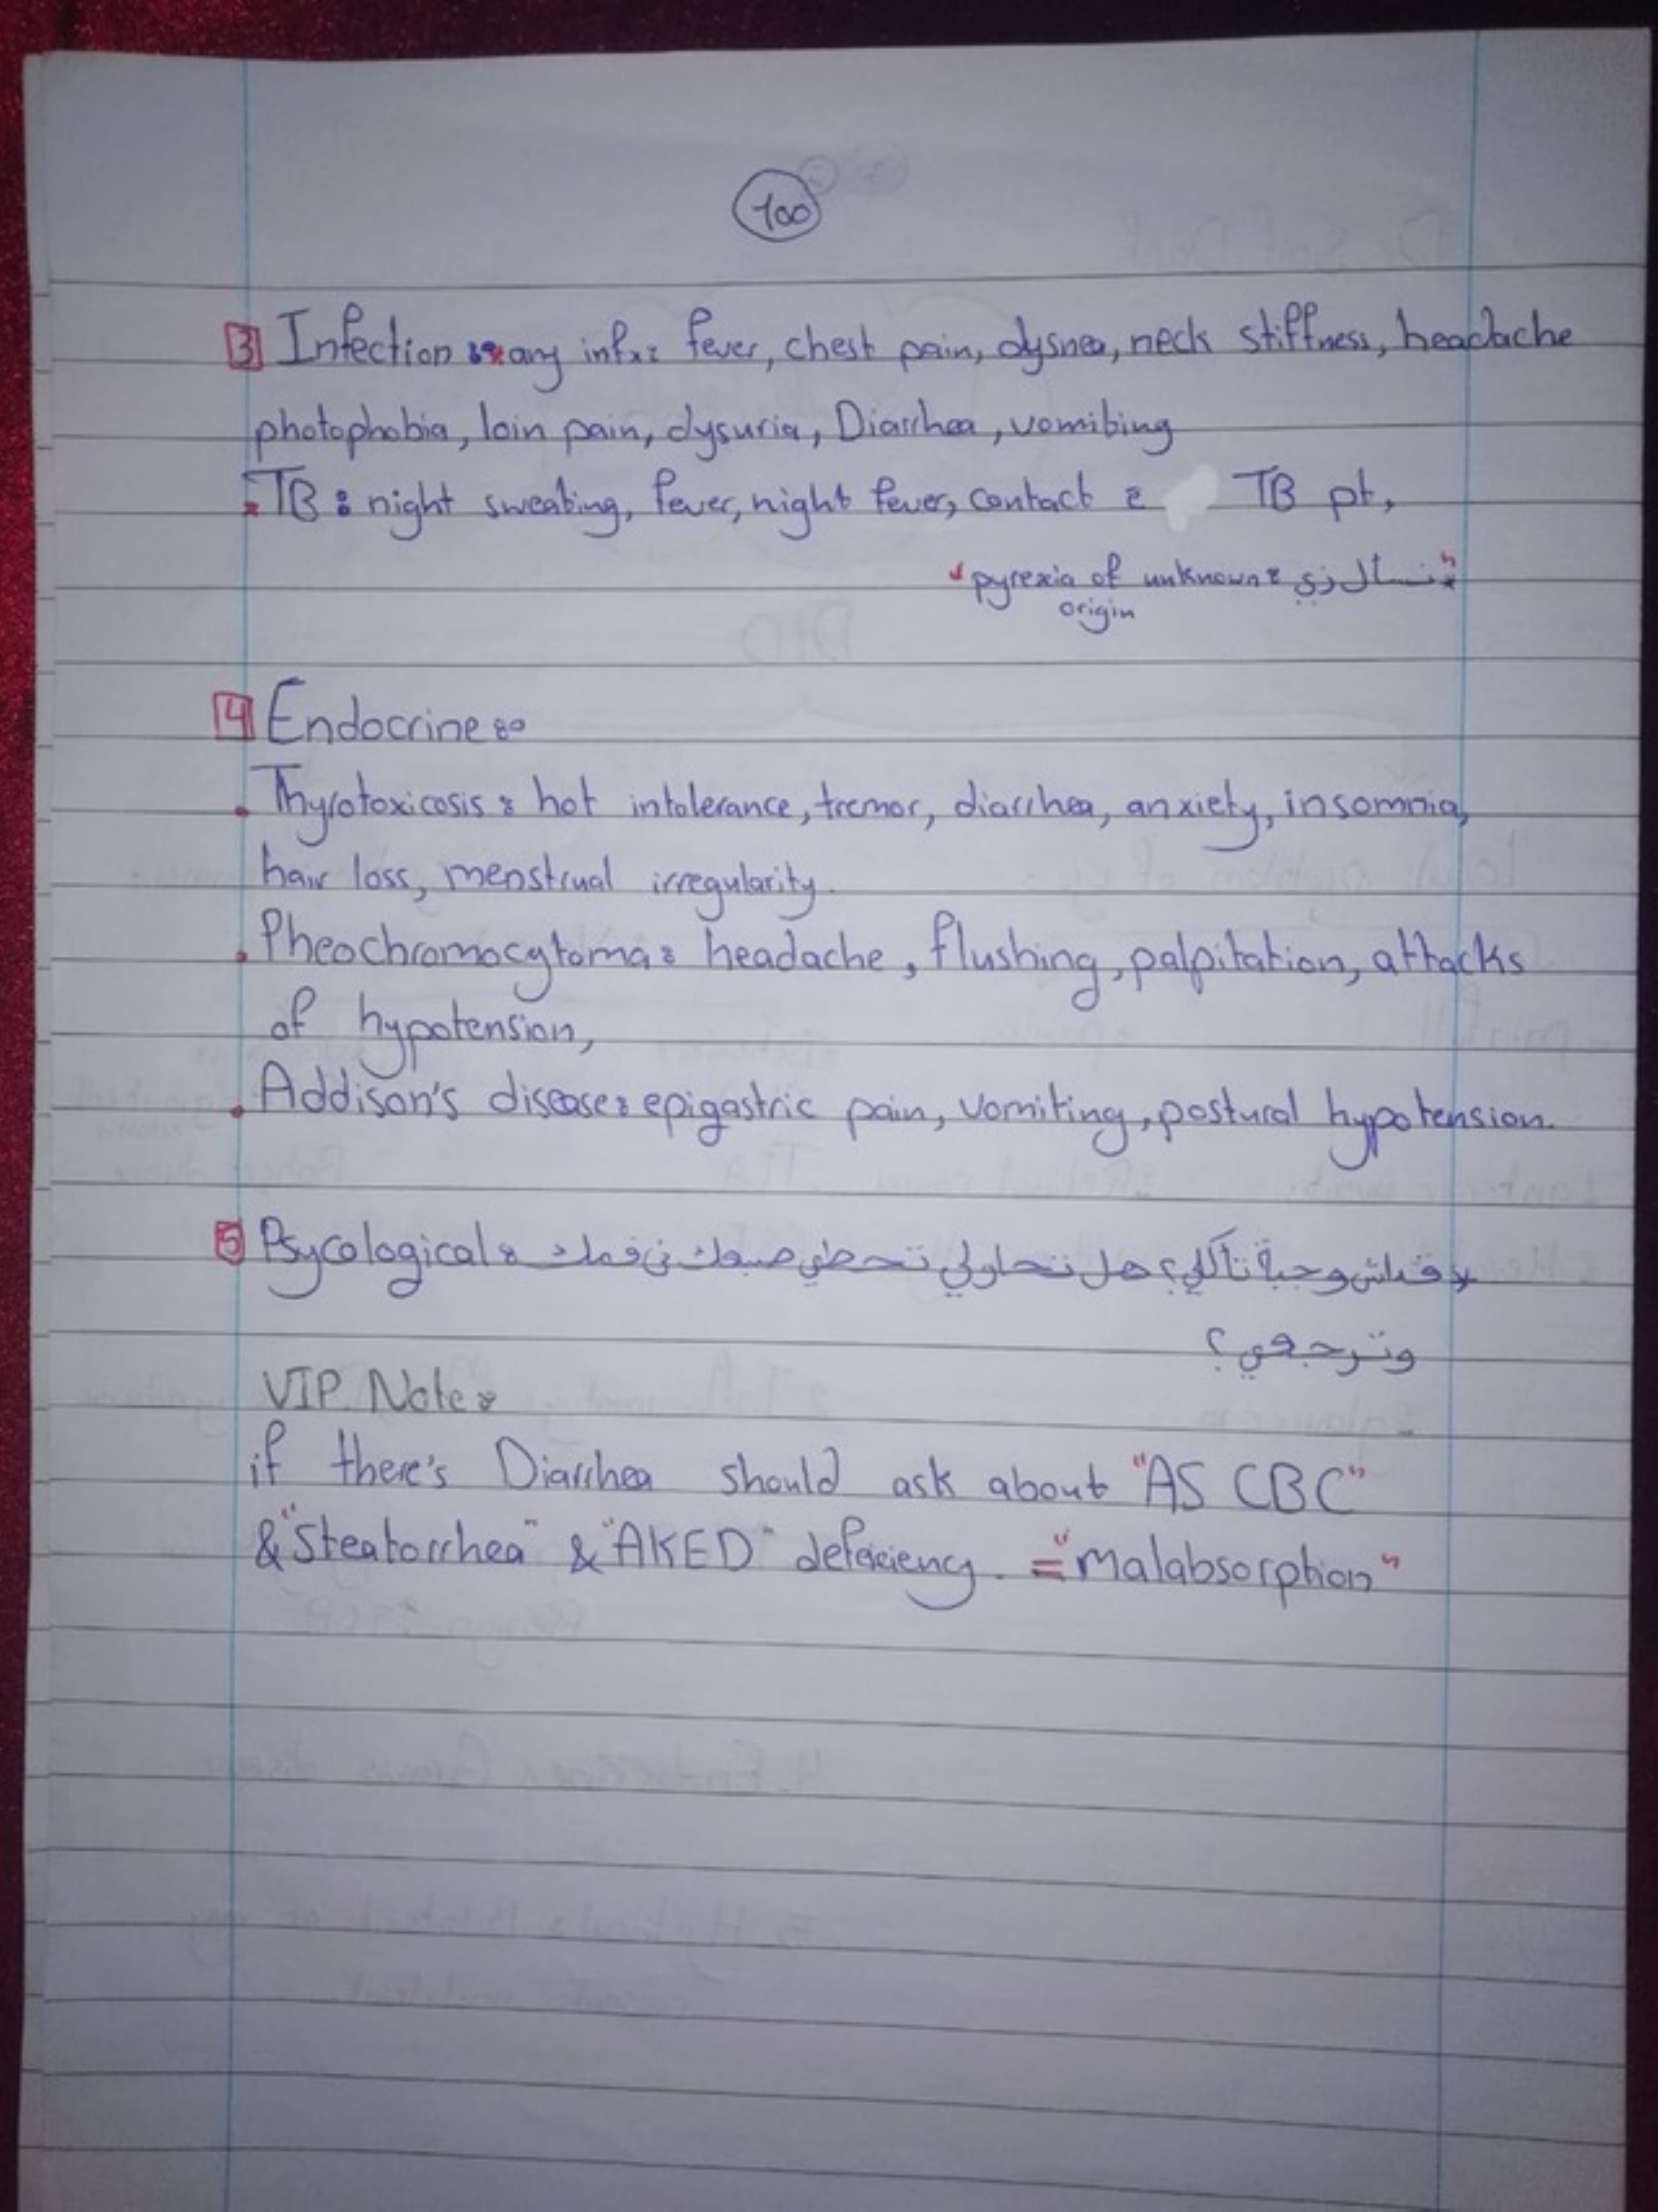 100
3 Infection : any infx: fever, chest pain, dysnea, neck stiffness, headache
photophobia, loin pain, dysuria, Diarrhea, vomiting
TB: night sweating, fever, night fever, contact c TB pt,
"نسأل زي: pyrexia of unknown origin"
4 Endocrine:
. Thyrotoxicosis: hot intolerance, tremor, diarrhea, anxiety, insomnia,
hair loss, menstrual irregularity.
. Pheochromocytoma: headache, flushing, palpitation, attacks
of hypotension,
. Addison's disease: epigastric pain, vomiting, postural hypotension.
5 Psycological: قداش وجبة تأكلي؟ هل تحاولي تحطي صبعك في فمك
وترجعي؟
VIP. Note:
if there's Diarrhea should ask about "AS CBC"
& "Steatorrhea" & "AKED" defeciency. = "malabsorption"